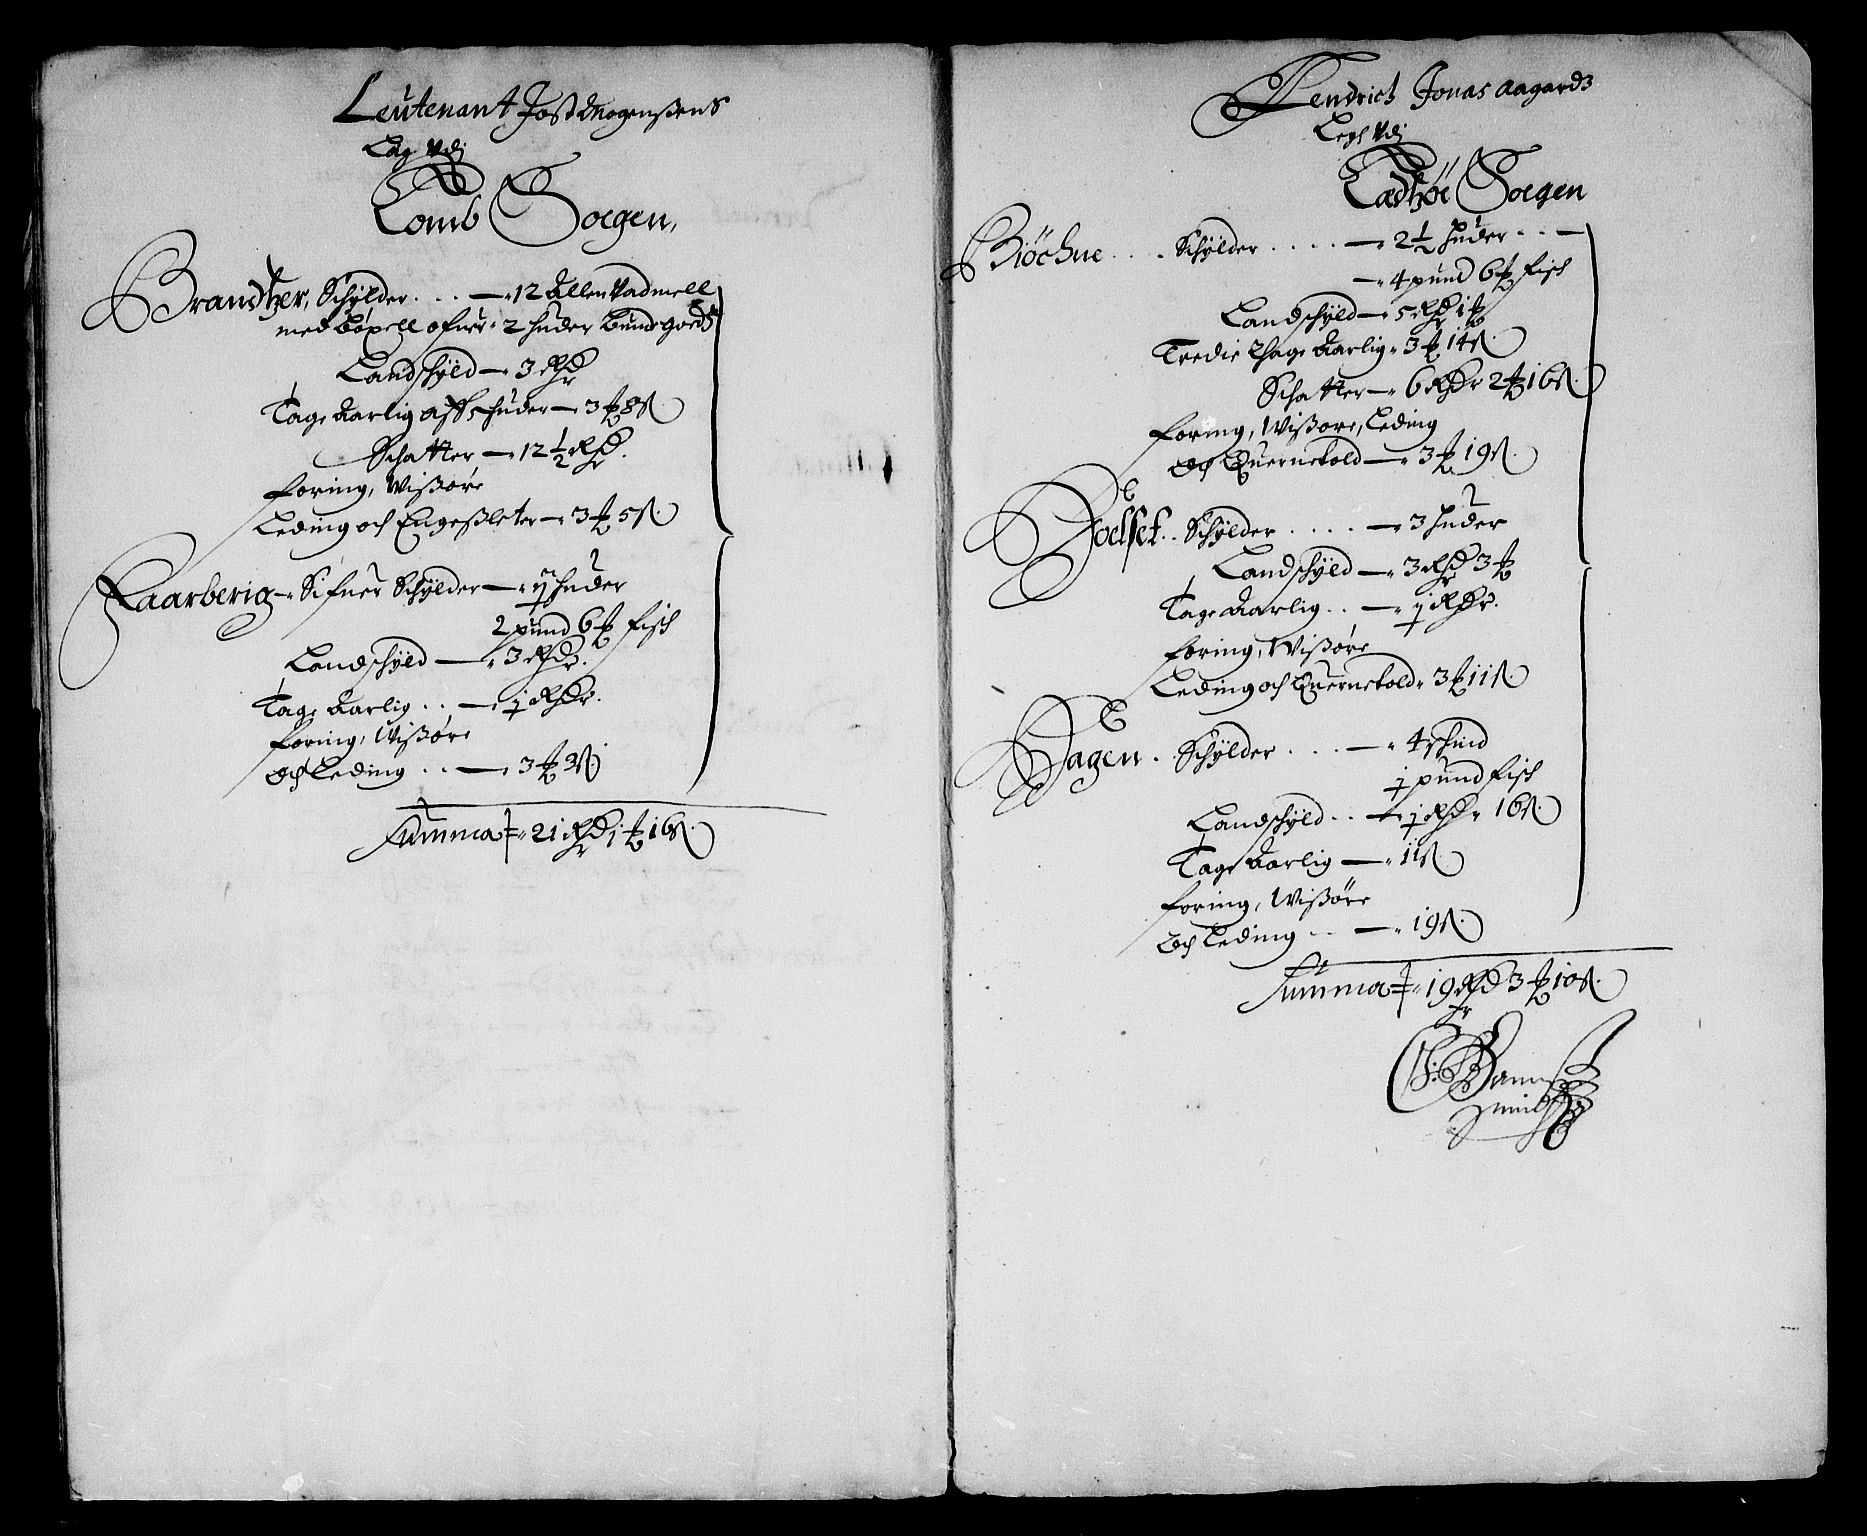 Leutenant Jost Mogenßens
Læg Vdj
Lomb Soegen,
Brandther, Schylder . . . . 12 Allen Vadmell
med Bøxell ofuer 2 huder Bundegoedß
Landschyld 3 Rdr
Tage Aarlig aff 5 huder 3 ℔ 8 ß
Schatter 12½ Rdr.
foring, Wißøre
Leding och Engeßleter 3 ℔ 5 ß
Aarberig Sifuer Schylder j huder
2 pund 6 ℔ fisch
Landschyld 3 Rdr.
Tage Aarlig . . j Rdr.
foring, Wißøre
och Leding . . 3 ℔ 3 ß
Summa 21 Rdr j ℔ 16 ß
Hendrich Jonas Aagardß
Legh Vdj
Lædhøe Soegen
Biöchne . . . Schylder . . . . 2½ huder . . .
4 pund 6 ℔ fisch
Landschyld 5 Rdr 1 ℔
Tredie Thage Aarlig 3 ℔ 14 ß
Schatter 6 Rdr 2 ℔ 16 ß
foring, Wißøre, Leding
och Quernetold 3 ℔ 19 ß
Hoelset . . Schylder . . . . 3 huder
Landschyld 3 Rdr 3 ℔
Tage Aarlig . . j Rdr.
foring, Wißøre
Leding och Quernetold 3 ℔ 11 ß
Hagen . Schylder . . . 4 schind
j pund fisch
Landschyld . . j Rdr 16 ß
Tage Aarlig 11 ß
foring, Wißøre
och Leding . . 19 ß
Summa 19 Rdr 3 ℔ 10 ß